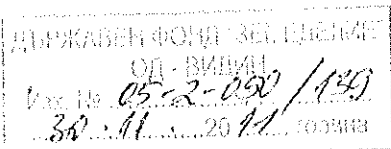 ДЪРЖАВЕН ФОНД "ЗЕМЕДЕЛИЕ"
ОД - ВИДИН
Изх. № 05-2-090 / 139
30.11. 2011 година